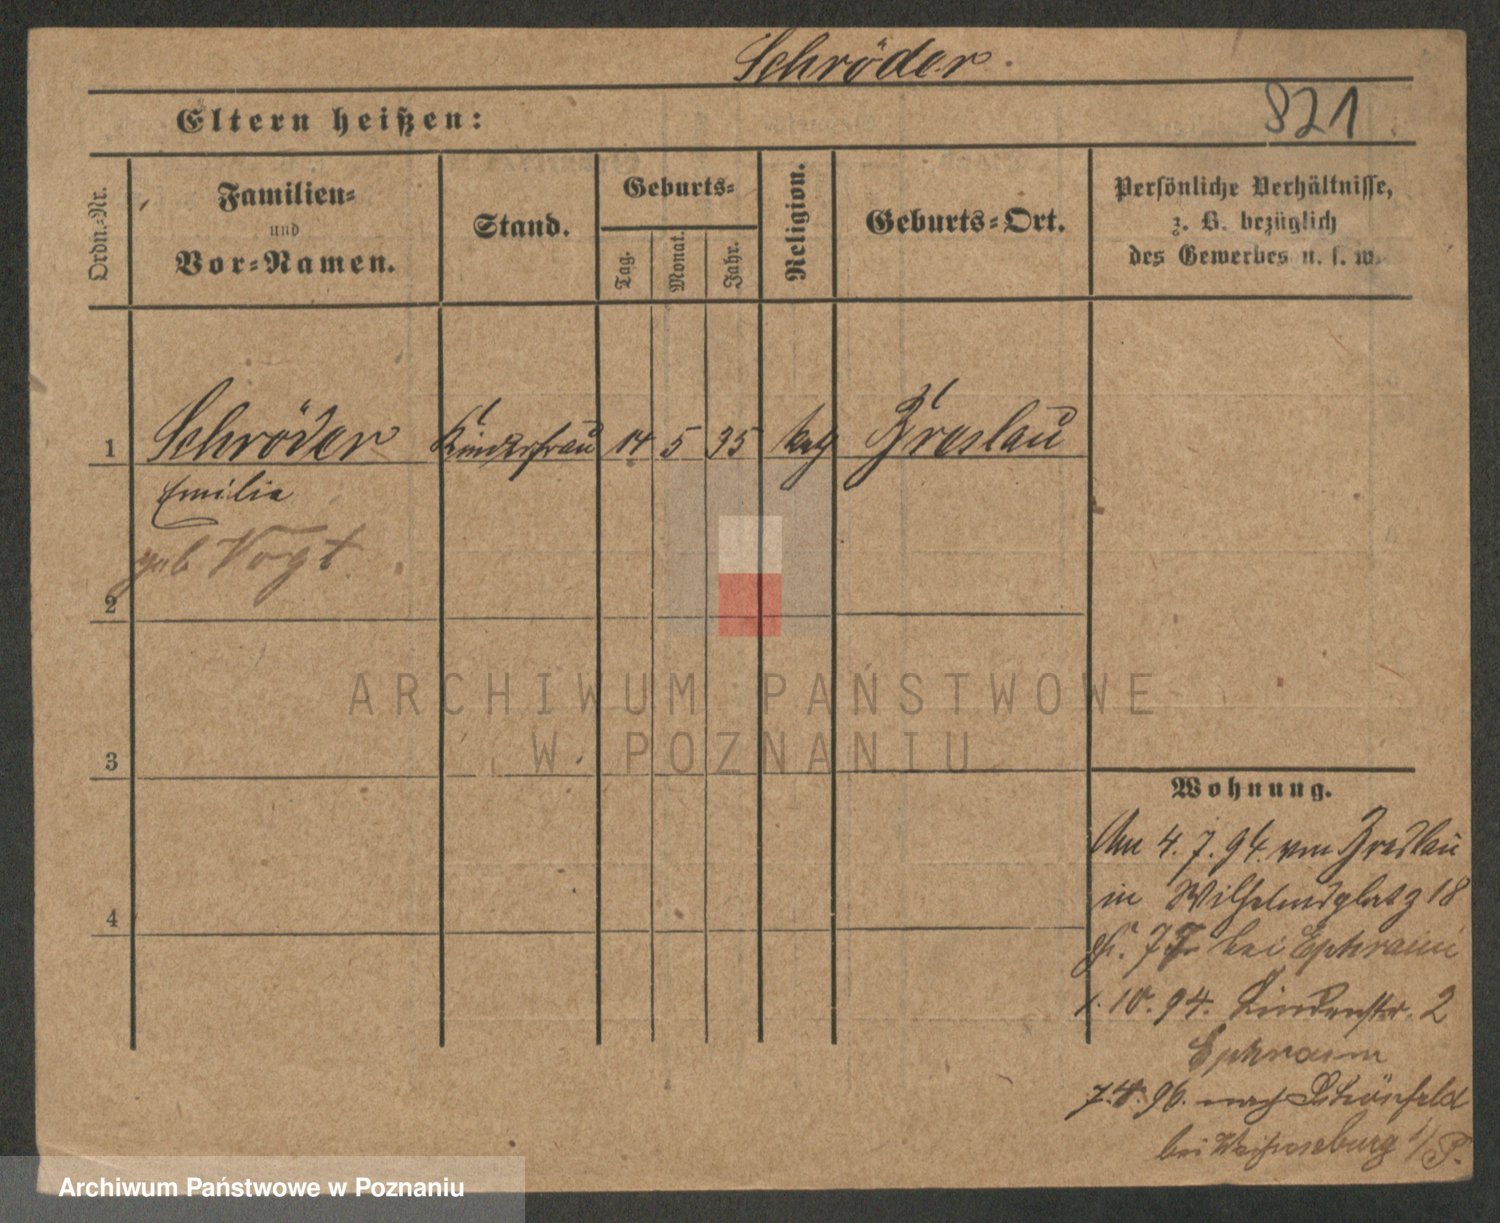 Schröder.
821
Eltern heißen:
Ordn.-Nr.
Familien-
und
Vor-Namen.
Stand.
Geburts-
Tag.
Monat.
Jahr.
Religion.
Geburts-Ort.
Persönliche Verhältnisse,
z. B. bezüglich
des Gewerbes u. s. w.
1 Schröder Kinderfrau 14 5 35 Breslau
Emilie
geb Vogt
2
3
4
Wohnung.
4. 7. 94. von Breslau
in Wilhelmsplatz 18
bei Ephraim
1. 10. 94. Lindenstr. 2
Ephraim
96. nach Schönfeld
bei
ARCHIWUM PAŃSTWOWE
W POZNANIU
Archiwum Państwowe w Poznaniu